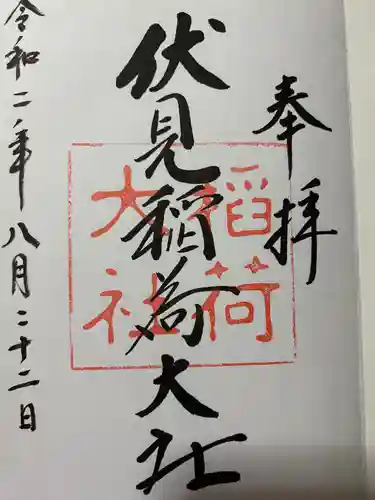 奉拝
伏見稲荷大社
稲荷
大社
令和二年八月二十二日